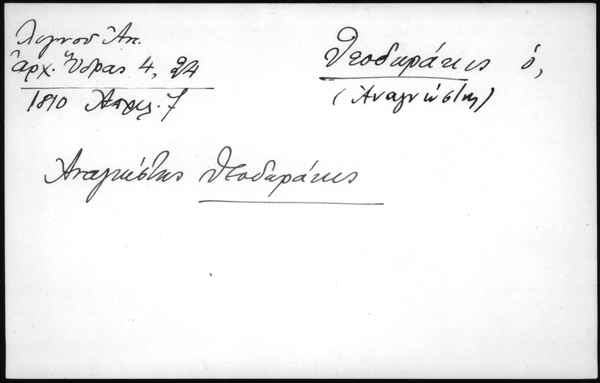 Λιγνοῦ Ἀν.
ἀρχ. Ὕδρας 4, 24
1810 Ἀπριλ. 7
Θεοδωράκις ὁ,
(Ἀναγνώστης)
Ἀναγνώστης Θεοδωράκις